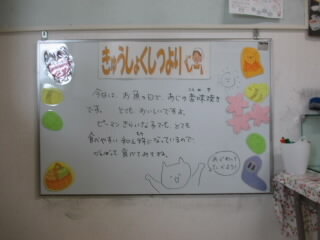 きゅうしょくしつより
今日は、お魚の日で、あじの香味焼き
です。とても、おいしいですよ。
ピーマンきらいな子でも、とても
食べやすい 和え物になっているので、
がんばって 食べてみてね。